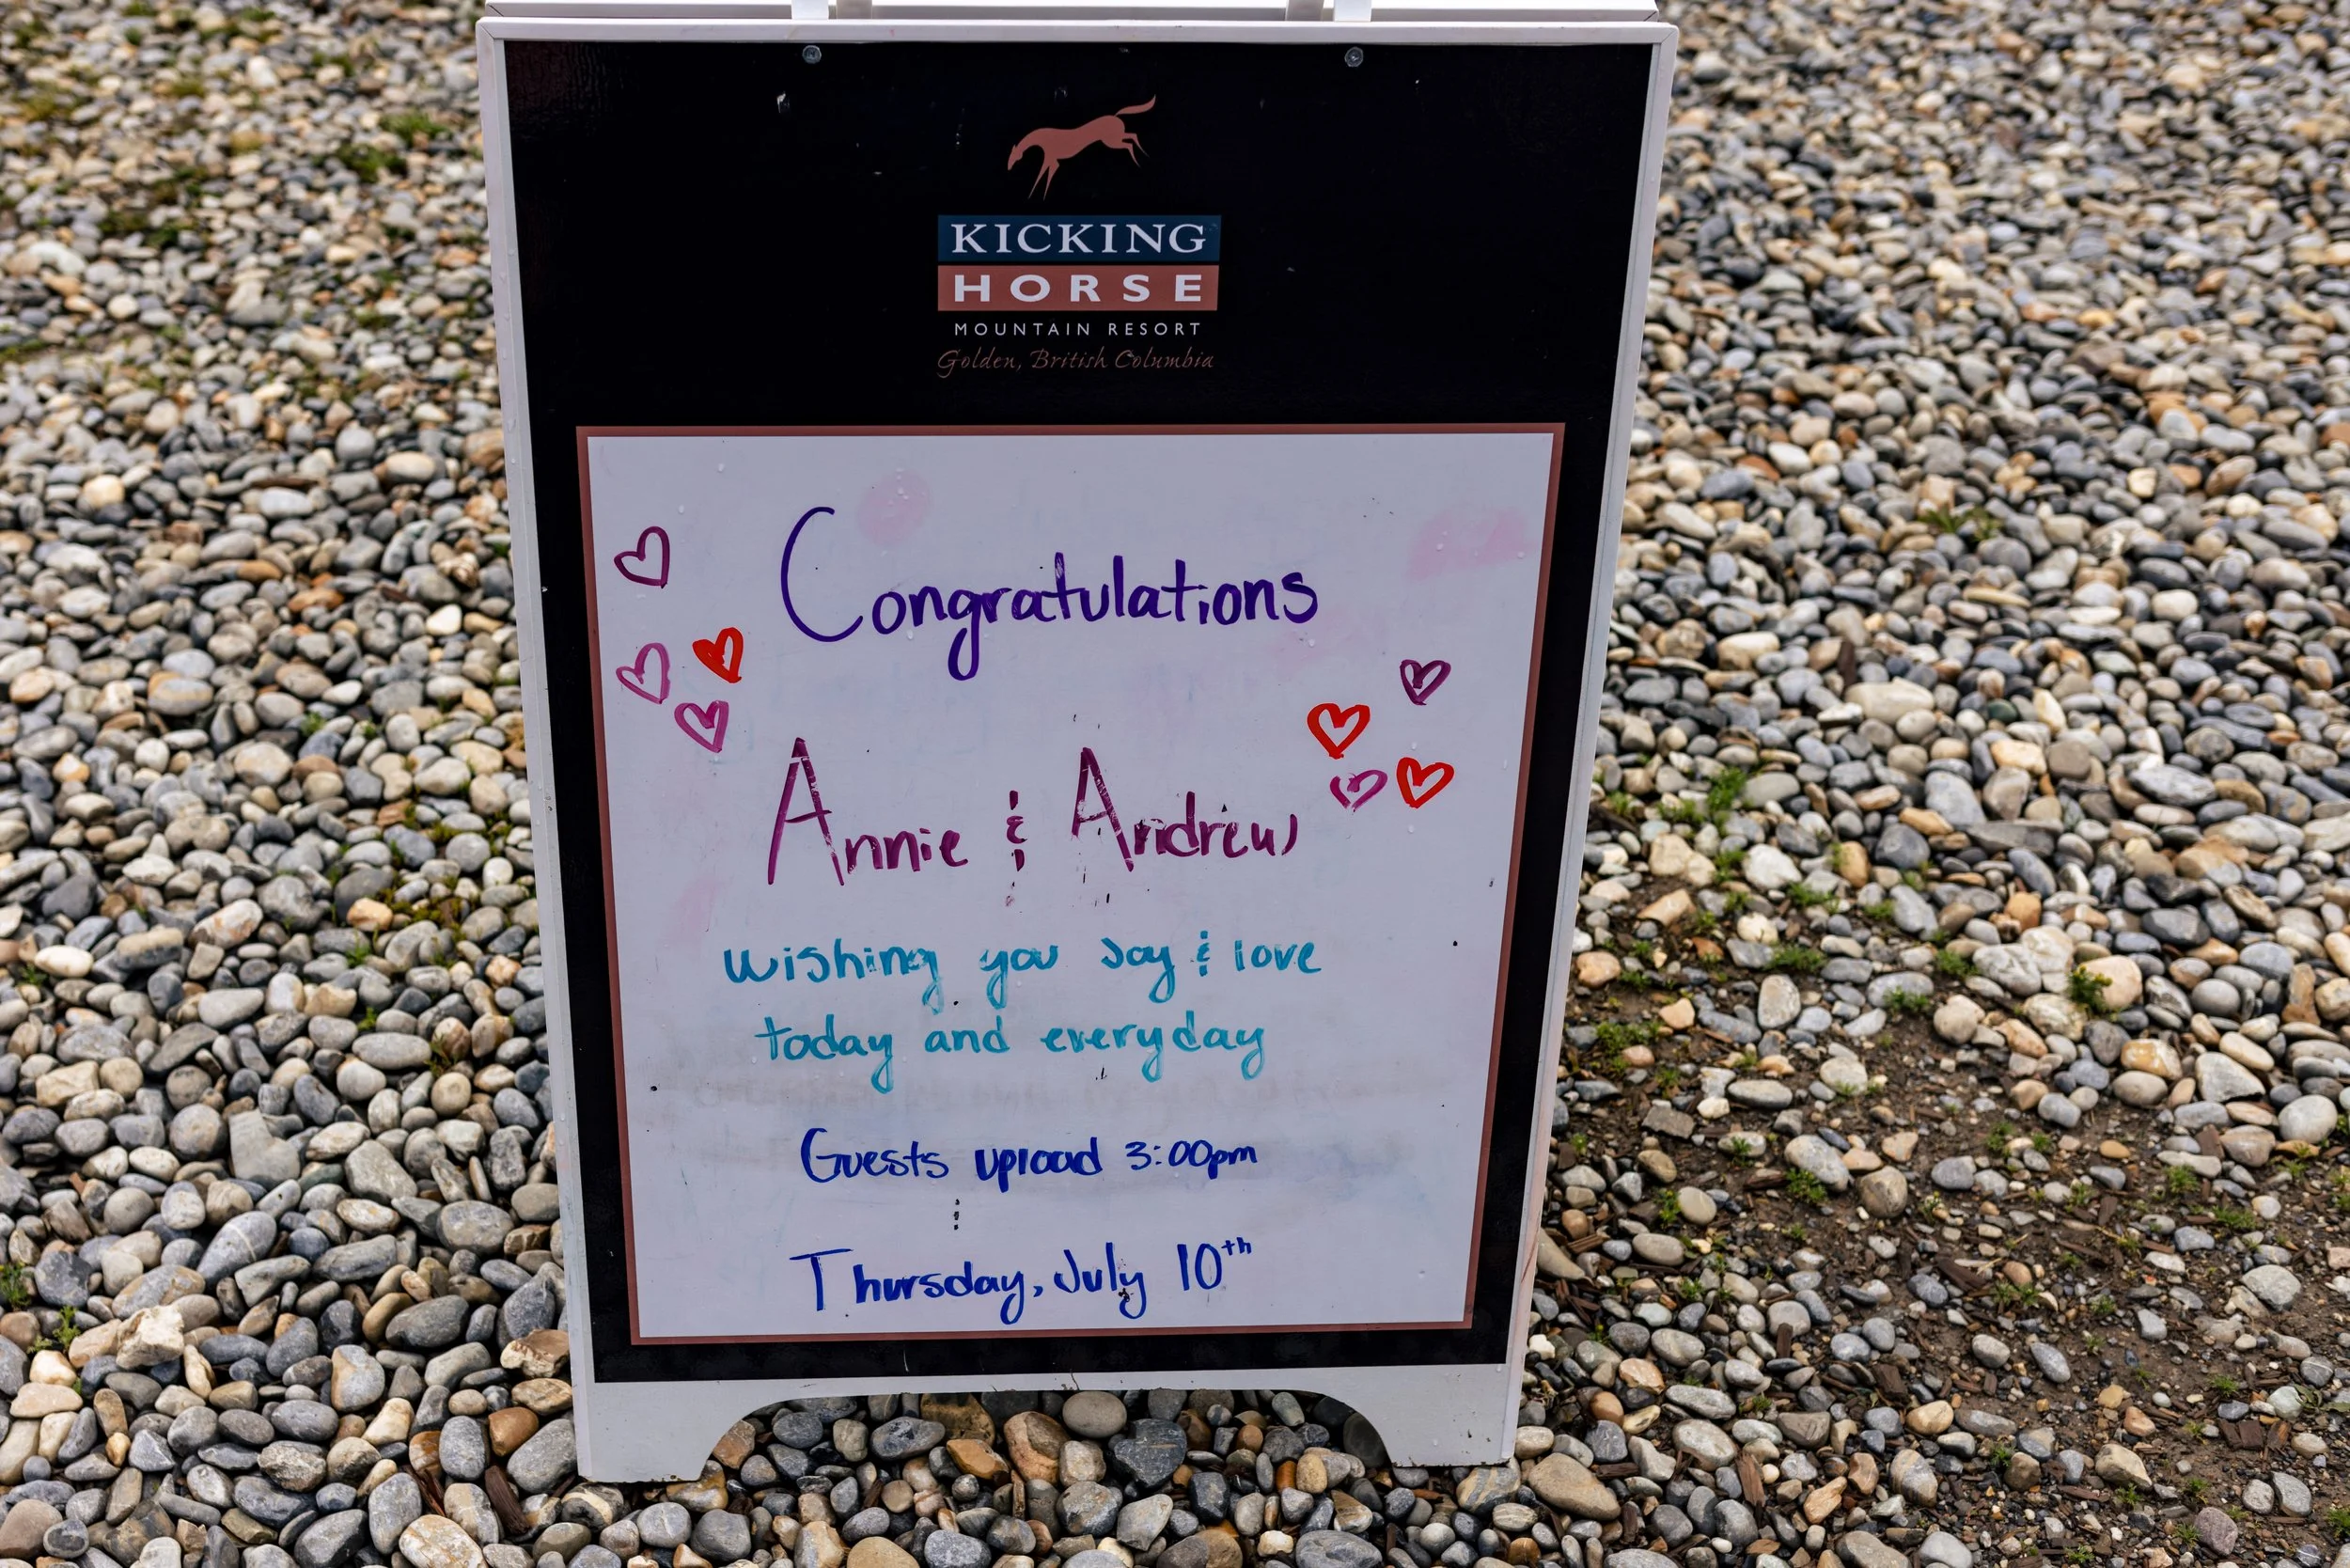 KICKING
HORSE
MOUNTAIN RESORT
Golden, British Columbia
Congratulations
Annie & Andrew
Wishing you Joy & love
today and everyday
Guests upload 3:00pm
Thursday, July 10th